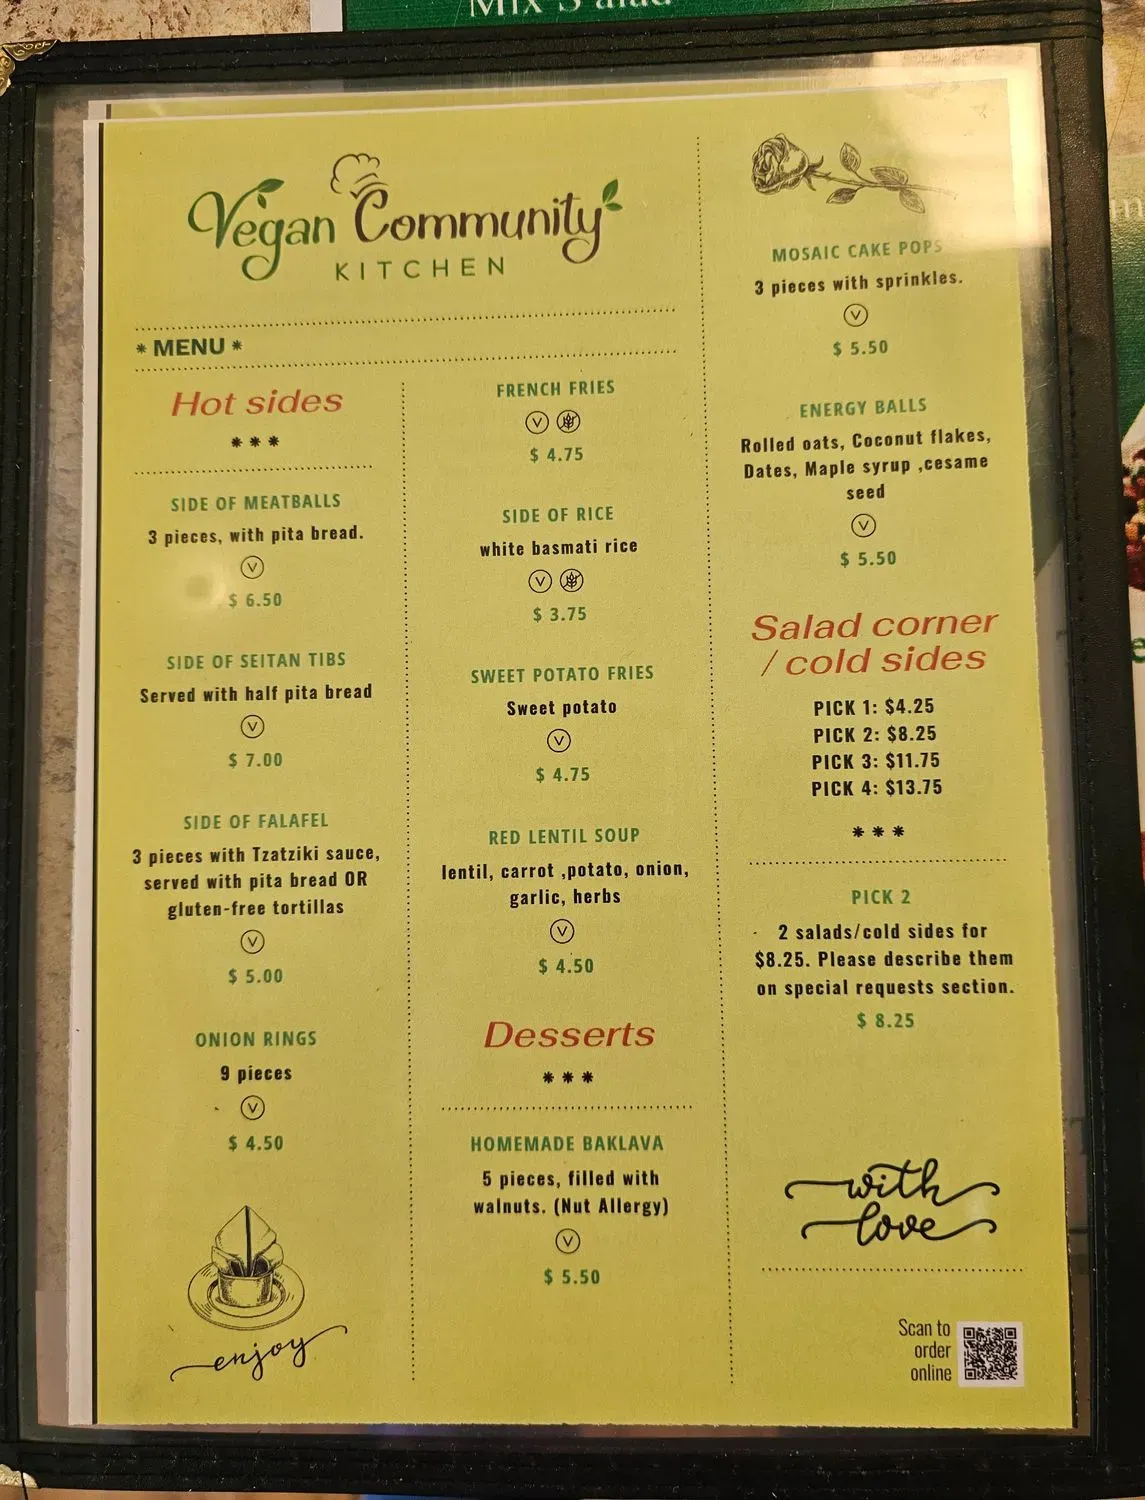 Mix Salad
Vegan Community
KITCHEN
* MENU *
Hot sides
***
SIDE OF MEATBALLS
3 pieces, with pita bread.
V
$ 6.50
SIDE OF SEITAN TIBS
Served with half pita bread
V
$ 7.00
SIDE OF FALAFEL
3 pieces with Tzatziki sauce,
served with pita bread OR
gluten-free tortillas
V
$ 5.00
ONION RINGS
9 pieces
V
$ 4.50
enjoy
FRENCH FRIES
V
$ 4.75
SIDE OF RICE
white basmati rice
V
$ 3.75
SWEET POTATO FRIES
Sweet potato
V
$ 4.75
RED LENTIL SOUP
lentil, carrot ,potato, onion,
garlic, herbs
V
$ 4.50
Desserts
***
HOMEMADE BAKLAVA
5 pieces, filled with
walnuts. (Nut Allergy)
V
$ 5.50
MOSAIC CAKE POPS
3 pieces with sprinkles.
V
$ 5.50
ENERGY BALLS
Rolled oats, Coconut flakes,
Dates, Maple syrup ,cesame
seed
V
$ 5.50
Salad corner
/ cold sides
PICK 1: $4.25
PICK 2: $8.25
PICK 3: $11.75
PICK 4: $13.75
***
PICK 2
2 salads/cold sides for
$8.25. Please describe them
on special requests section.
$ 8.25
with
love
Scan to
order
online